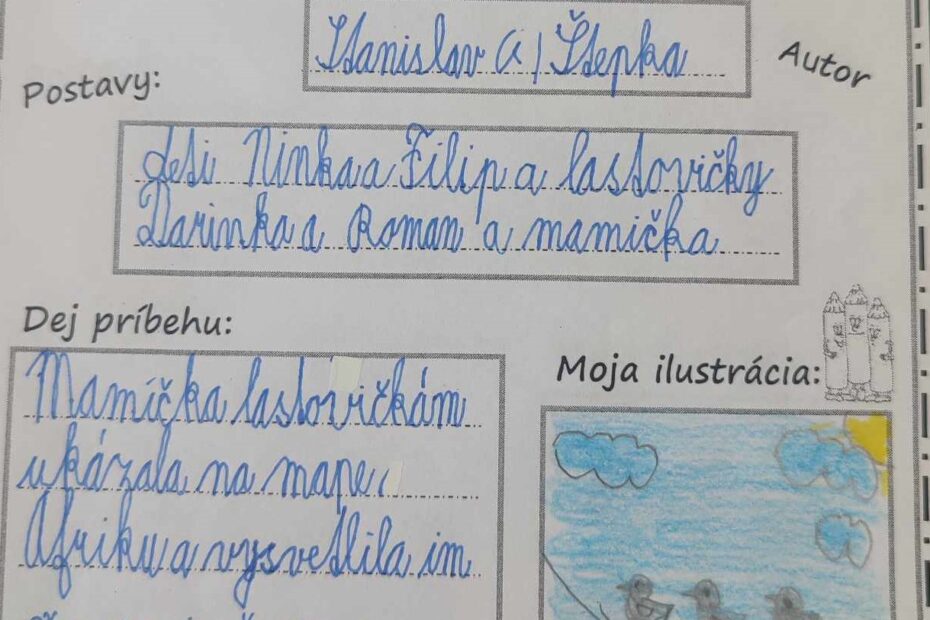 Stanislav Štepka
Autor
Postavy:
deti Ninka a Filip a lastovičky
Darinka a Roman a mamička
Dej príbehu:
Moja ilustrácia:
Mamíčka lastovičkám
ukázala na mape
Afriku a vysvetlila im